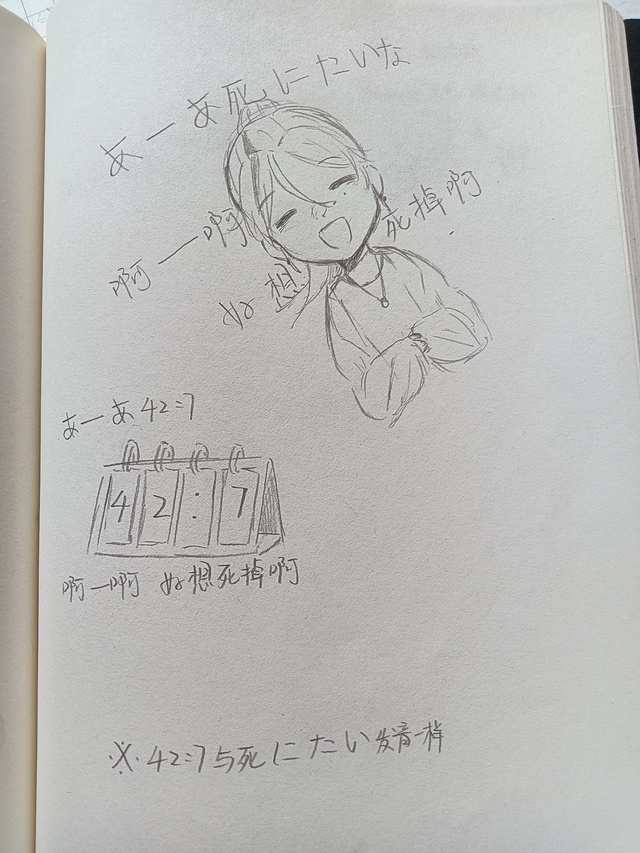 あーあ死にたいな
啊一啊
好想
死掉啊
あーあ42:7
42:7
啊一啊 好想死掉啊
※42:7与死にたい发音一样